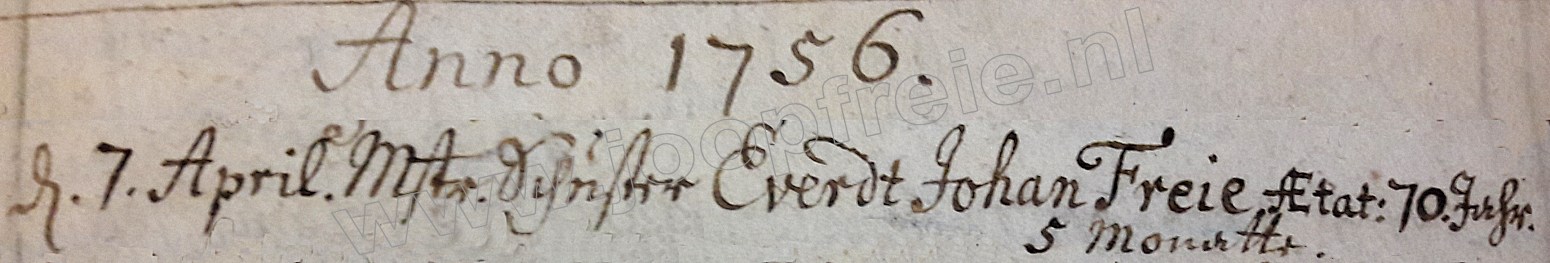 Anno 1756.
d. 7. April. Mstr. Schuster Everdt Johan Freie, Ætat: 70. Jahr.
5 Monatte.
www.joopfreie.nl